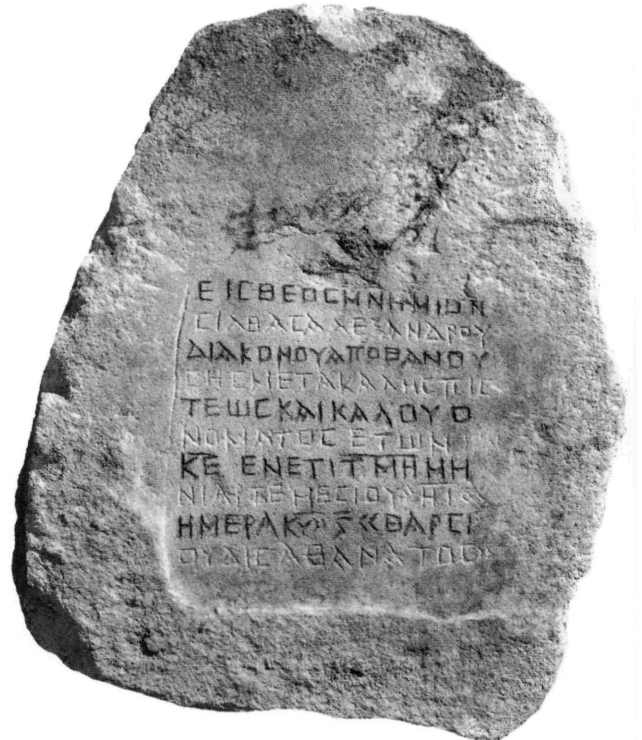 ΕΙCΘΕΟCΜΝΗΜΙΟΝ
CΙΛΘΑCΑΛΕΞΑΝΔΡΟΥ
ΔΙΑΚΟΝΟΥΑΠΟΘΑΝΟΥ
CΗCΜΕΤΑΚΑΛΗCΠΙC
ΤΕΩCΚΑΙΚΑΛΟΥΟ
ΝΟΜΑΤΟCΕΤΩΝ
ΚΕ ΕΝΕΤΙ ΜΗΝΗ
ΝΙΑΡΤΕΜΕCΙΟΥ
ΗΜΕΡΑ ΘΑΡCΙ
ΟΥΔΙCΑΘΑΝΑΤΟC